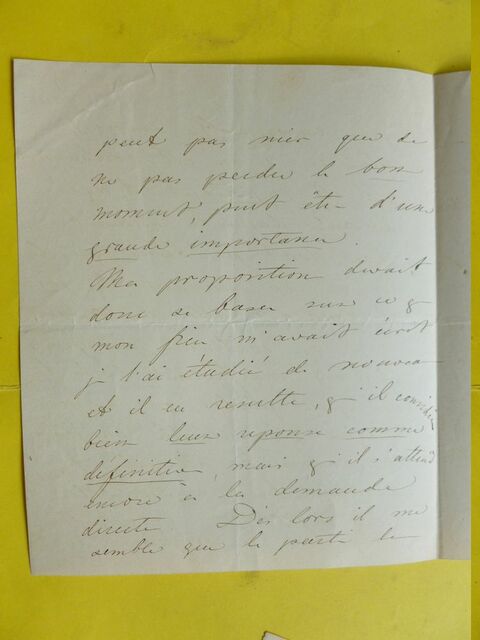 peut pas nier que de
ne pas perdre le bon
moment, peut être d'une
grande importance.
Ma proposition devait
donc se baser sur ce q
mon frère m'avait écrit
je l'ai étudié de nouveau
et il en resulte, q'il considère
bien leur reponse comme
définitive, mais q'il s'attend
encore à la demande
directe. Dès lors il me
semble que le parti le